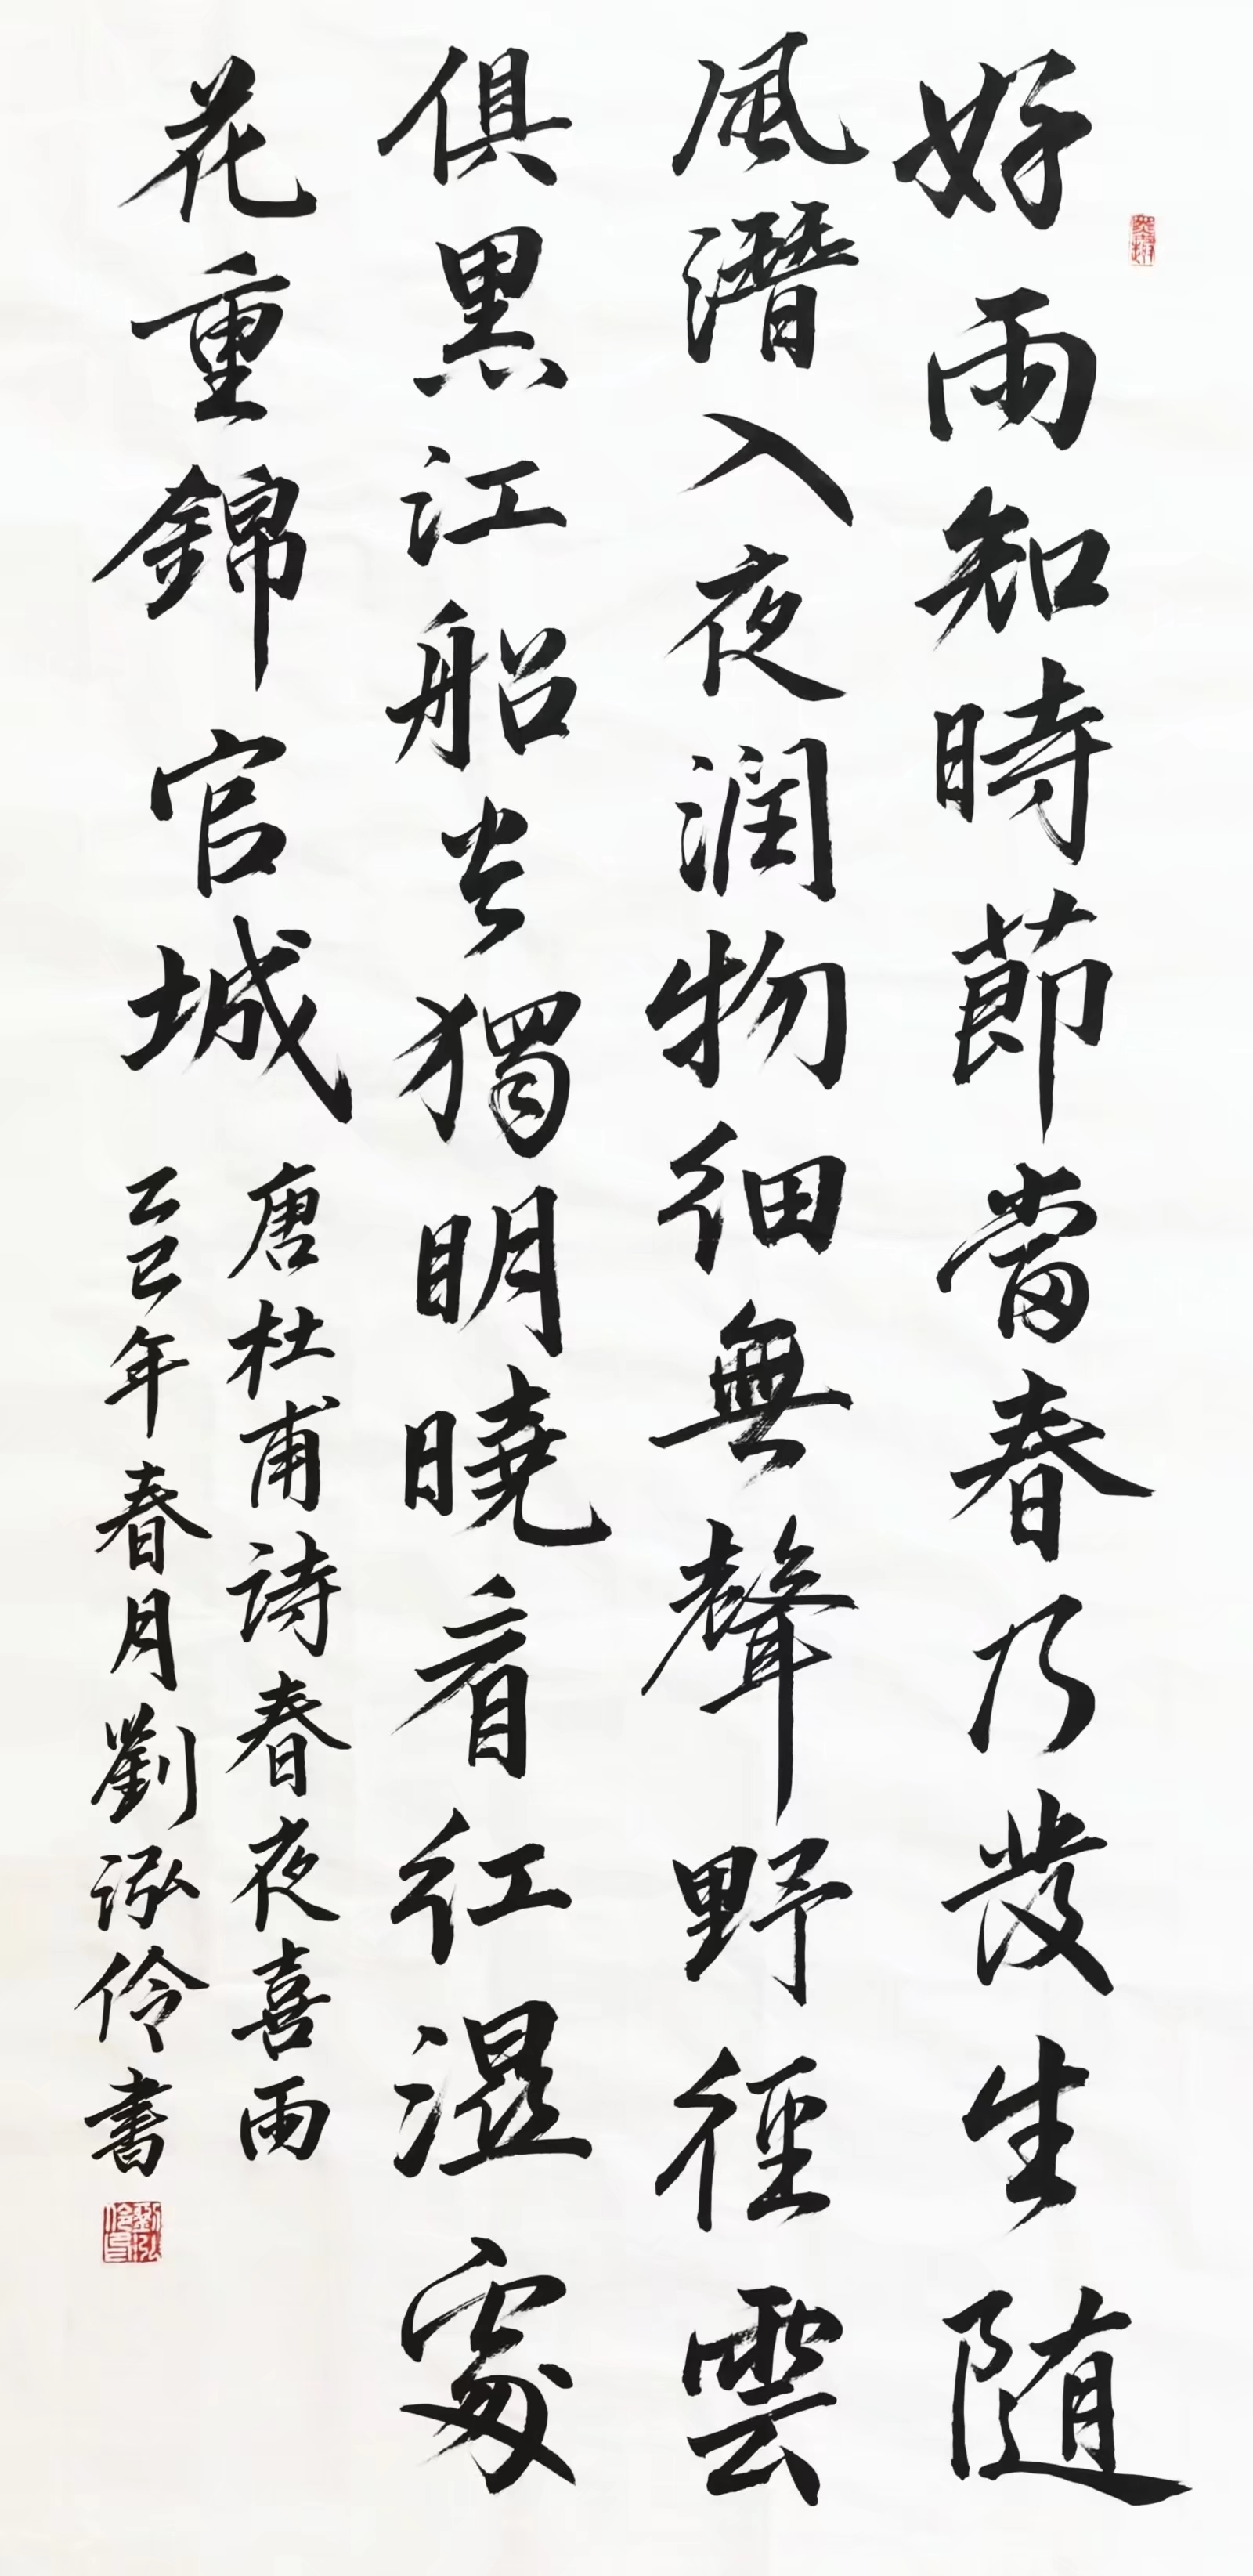 好雨知時節當春乃發生随
風潛入夜潤物細無聲野徑雲
俱黑江船火獨明曉看紅濕處
花重錦官城
唐杜甫詩春夜喜雨
乙巳年春月劉泓伶書
劉泓伶印